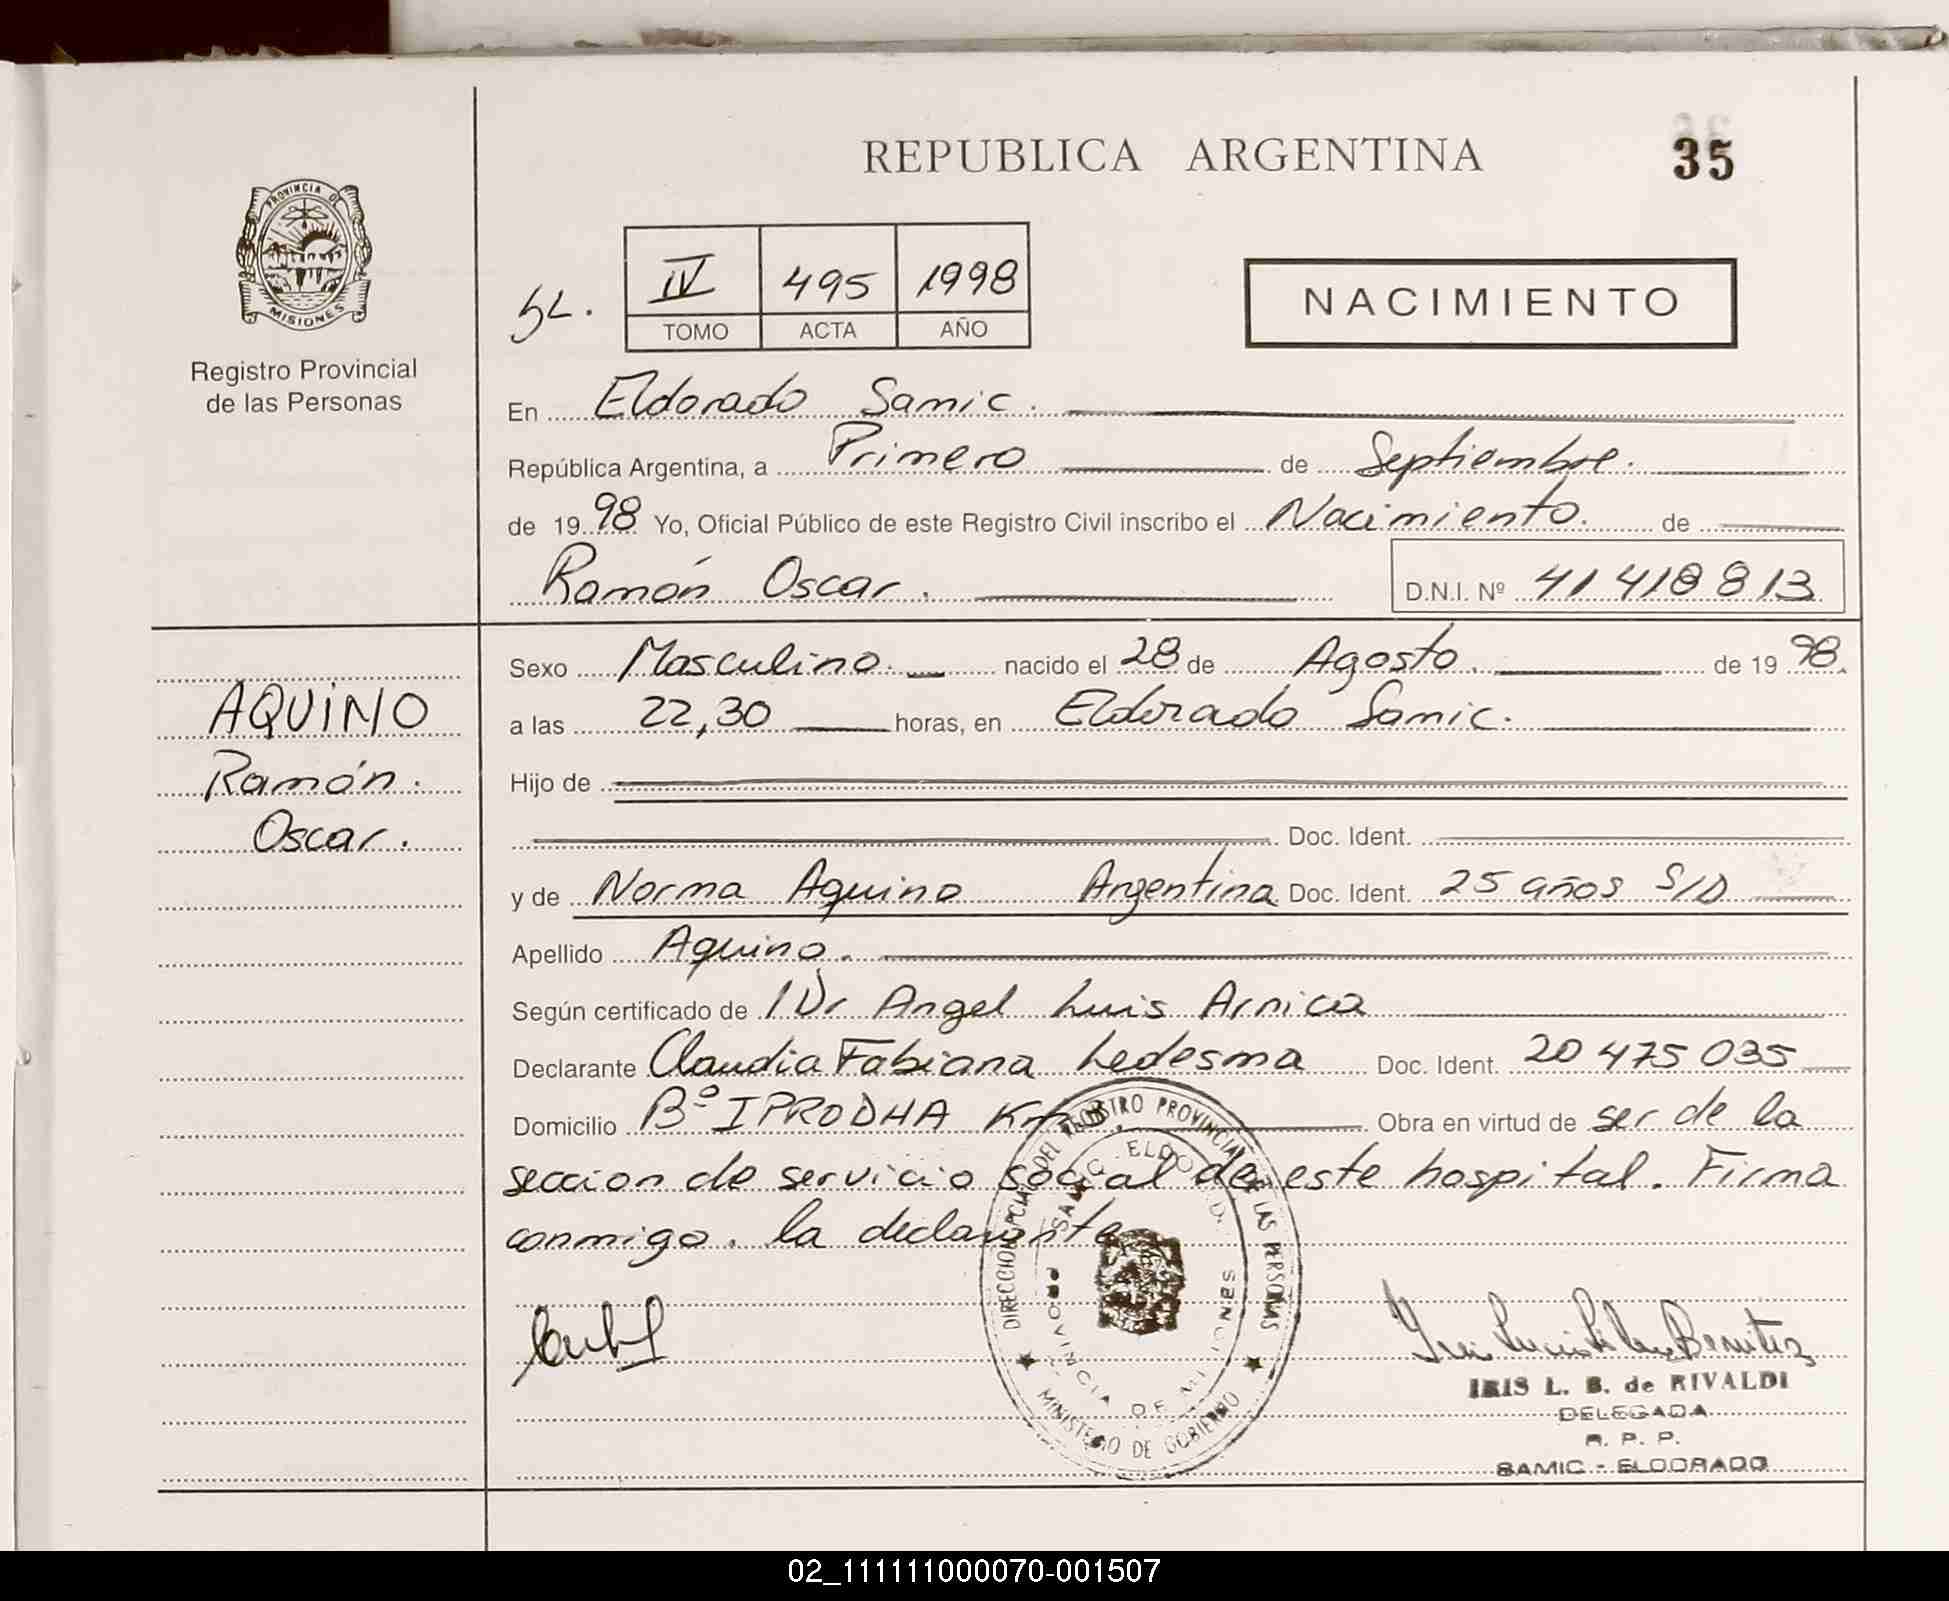 REPUBLICA ARGENTINA
35
PROVINCIA DE
MISIONES
Registro Provincial
de las Personas
IV 495 1998
TOMO ACTA AÑO
NACIMIENTO
En Eldorado Samic.
República Argentina, a Primero de Septiembre.
de 1998 Yo, Oficial Público de este Registro Civil inscribo el Nacimiento. de
Ramón Oscar. D.N.I. Nº 41 418 813
AQUINO
Ramón.
Oscar.
Sexo Masculino. nacido el 28 de Agosto. de 1998.
a las 22,30 horas, en Eldorado Samic.
Hijo de
Doc. Ident.
y de Norma Aquino Argentina Doc. Ident. 25 años S/D
Apellido Aquino.
Según certificado de Dr Angel Luis Arnica
Declarante Claudia Fabiana Ledesma Doc. Ident. 20 475 035
Domicilio Bº IPRODHA Km Obra en virtud de ser de la
seccion de servicio social de este hospital. Firma
conmigo. la declarante
DIRECCION PCIAL DEL REGISTRO PROVINCIAL DE LAS PERSONAS
MINISTERIO DE GOBIERNO
PROVINCIA DE MISIONES
IRIS L. B. de RIVALDI
DELEGADA
R. P. P.
SAMIC - ELDORADO
02_111111000070-001507